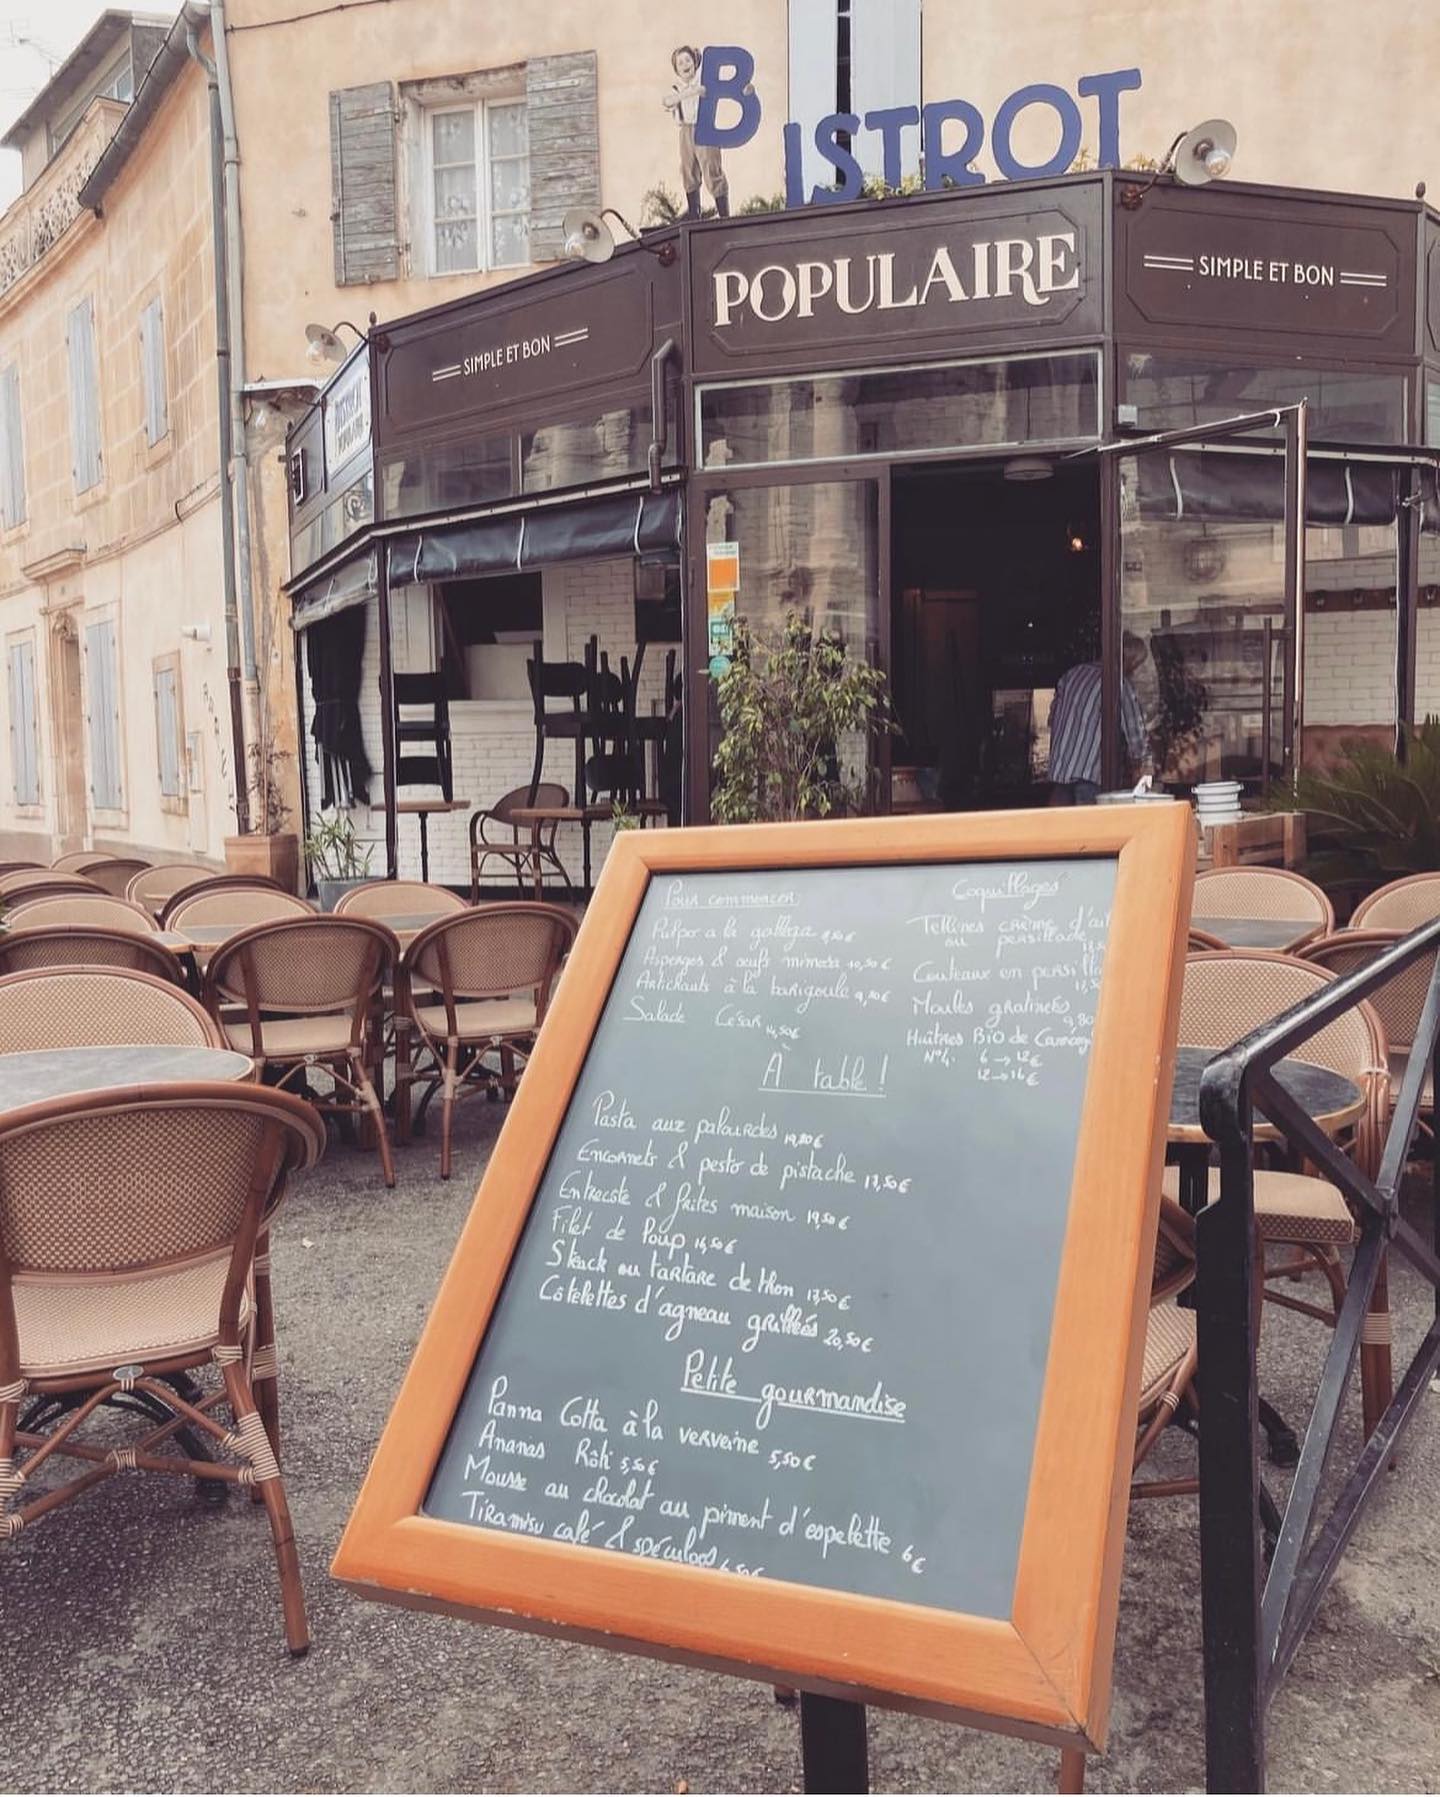 BISTROT
POPULAIRE
SIMPLE ET BON
SIMPLE ET BON
Pour commencer
Pulpo a la gallega 9,50€
Asperges & œufs mimosa 10,50€
Artichauts à la barigoule 9,50€
Salade César 14,50€
Coquillages
Tellines crème d'ail
ou persillade
Couteaux en persilla
17,50
Moules gratinées
9,80
Huîtres BiO de Camarg
N°4. 6→12€
12→16€
A table !
Pasta aux palourdes 19,80€
Encornets & pesto de pistache 17,50€
Entrecôte & frites maison 19,50€
Filet de Loup 16,50€
Steack ou tartare de thon 17,50€
Côtelettes d'agneau grillées 20,50€
Petite gourmandise
Panna Cotta à la verveine 5,50€
Ananas Rôti 5,50€
Mousse au chocolat au piment d'espelette 6€
Tiramisu café & spéculoos 6,50€